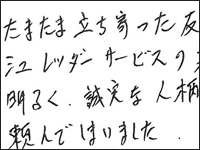 たまたま立ち寄った反
シュレッダーサービスの
明るく、誠実な人柄
頼んでしまいました.